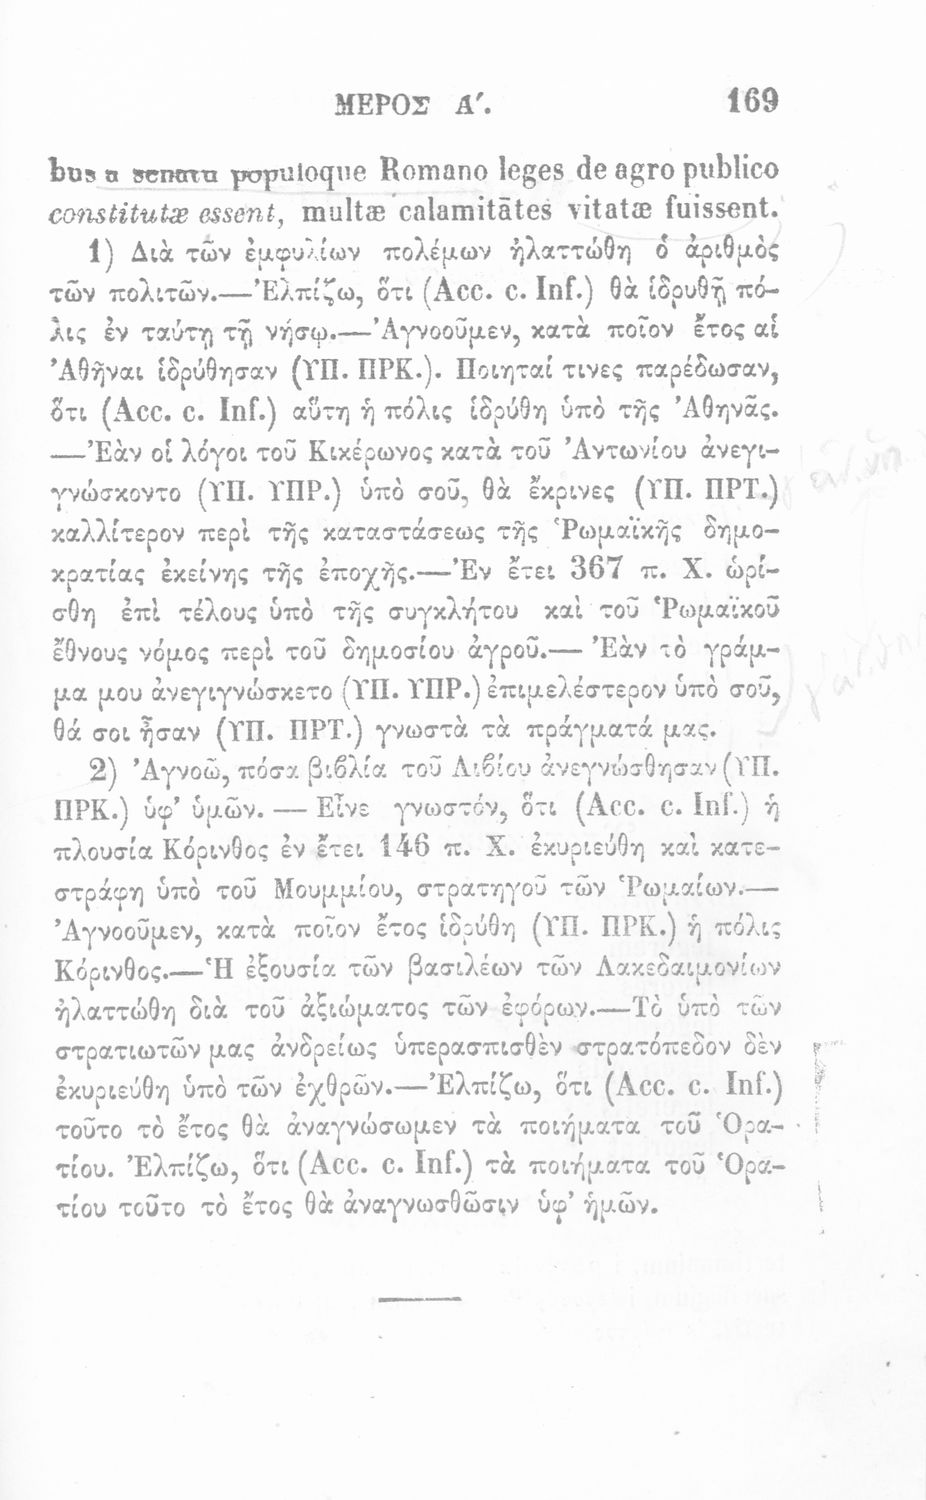 ΜΕΡΟΣ Α΄. 169
bus a senatu populoque Romano leges de agro publico
constitutæ essent, multæ calamitātes vitatæ fuissent.
1) Διὰ τῶν ἐμφυλίων πολέμων ἠλαττώθη ὁ ἀριθμὸς
τῶν πολιτῶν.—Ἐλπίζω, ὅτι (Acc. c. Inf.) θὰ ἱδρυθῇ πό-
λις ἐν ταύτῃ τῇ νήσῳ.—Ἀγνοοῦμεν, κατὰ ποῖον ἔτος αἱ
Ἀθῆναι ἱδρύθησαν (ΥΠ. ΠΡΚ.). Ποιηταί τινες παρέδωσαν,
ὅτι (Acc. c. Inf.) αὕτη ἡ πόλις ἱδρύθη ὑπὸ τῆς Ἀθηνᾶς.
—Ἐὰν οἱ λόγοι τοῦ Κικέρωνος κατὰ τοῦ Ἀντωνίου ἀνεγι-
γνώσκοντο (ΥΠ. ΥΠΡ.) ὑπὸ σοῦ, θὰ ἔκρινες (ΥΠ. ΠΡΤ.)
καλλίτερον περὶ τῆς καταστάσεως τῆς Ῥωμαϊκῆς δημο-
κρατίας ἐκείνης τῆς ἐποχῆς.—Ἐν ἔτει 367 π. Χ. ὡρί-
σθη ἐπὶ τέλους ὑπὸ τῆς συγκλήτου καὶ τοῦ Ῥωμαϊκοῦ
ἔθνους νόμος περὶ τοῦ δημοσίου ἀγροῦ.— Ἐὰν τὸ γράμ-
μα μου ἀνεγιγνώσκετο (ΥΠ. ΥΠΡ.) ἐπιμελέστερον ὑπὸ σοῦ,
θά σοι ἦσαν (ΥΠ. ΠΡΤ.) γνωστὰ τὰ πράγματά μας.
2) Ἀγνοῶ, πόσα βιβλία τοῦ Λιβίου ἀνεγνώσθησαν (ΥΠ.
ΠΡΚ.) ὑφ' ὑμῶν. — Εἶνε γνωστόν, ὅτι (Acc. c. Inf.) ἡ
πλουσία Κόρινθος ἐν ἔτει 146 π. Χ. ἐκυριεύθη καὶ κατε-
στράφη ὑπὸ τοῦ Μουμμίου, στρατηγοῦ τῶν Ῥωμαίων.—
Ἀγνοοῦμεν, κατὰ ποῖον ἔτος ἱδρύθη (ΥΠ. ΠΡΚ.) ἡ πόλις
Κόρινθος.—Ἡ ἐξουσία τῶν βασιλέων τῶν Λακεδαιμονίων
ἠλαττώθη διὰ τοῦ ἀξιώματος τῶν ἐφόρων.—Τὸ ὑπὸ τῶν
στρατιωτῶν μας ἀνδρείως ὑπερασπισθὲν στρατόπεδον δὲν
ἐκυριεύθη ὑπὸ τῶν ἐχθρῶν.—Ἐλπίζω, ὅτι (Acc. c. Inf.)
τοῦτο τὸ ἔτος θὰ ἀναγνώσωμεν τὰ ποιήματα τοῦ Ὁρα-
τίου. Ἐλπίζω, ὅτι (Acc. c. Inf.) τὰ ποιήματα τοῦ Ὁρα-
τίου τοῦτο τὸ ἔτος θὰ ἀναγνωσθῶσιν ὑφ' ἡμῶν.